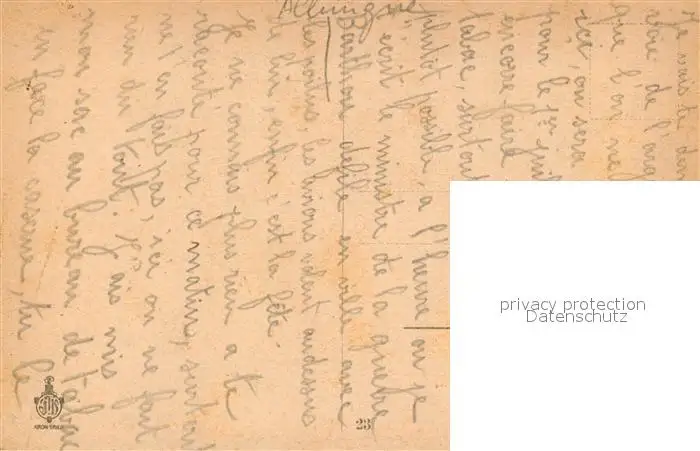 Allemagne
Je vais te den
voie de l'arg
que l'on ne
ici, on sera
pour le 1er juil
encore faire
tabac, surtout
plutôt possible, a l'heure ou je
t'écrit le ministre de la guerre
Barthou défile en ville avec
les poilus, les avions volent au dessus
de lui, enfin c'est la fête
Je ne connais plus rien a te
raconté pour ce matin, surtout
ne t'en fais pas, ici on ne fait
rien du tout. J'ais mis
mon sac au bureau de tabac
en face la caserne, tu le
23
privacy protection
Datenschutz